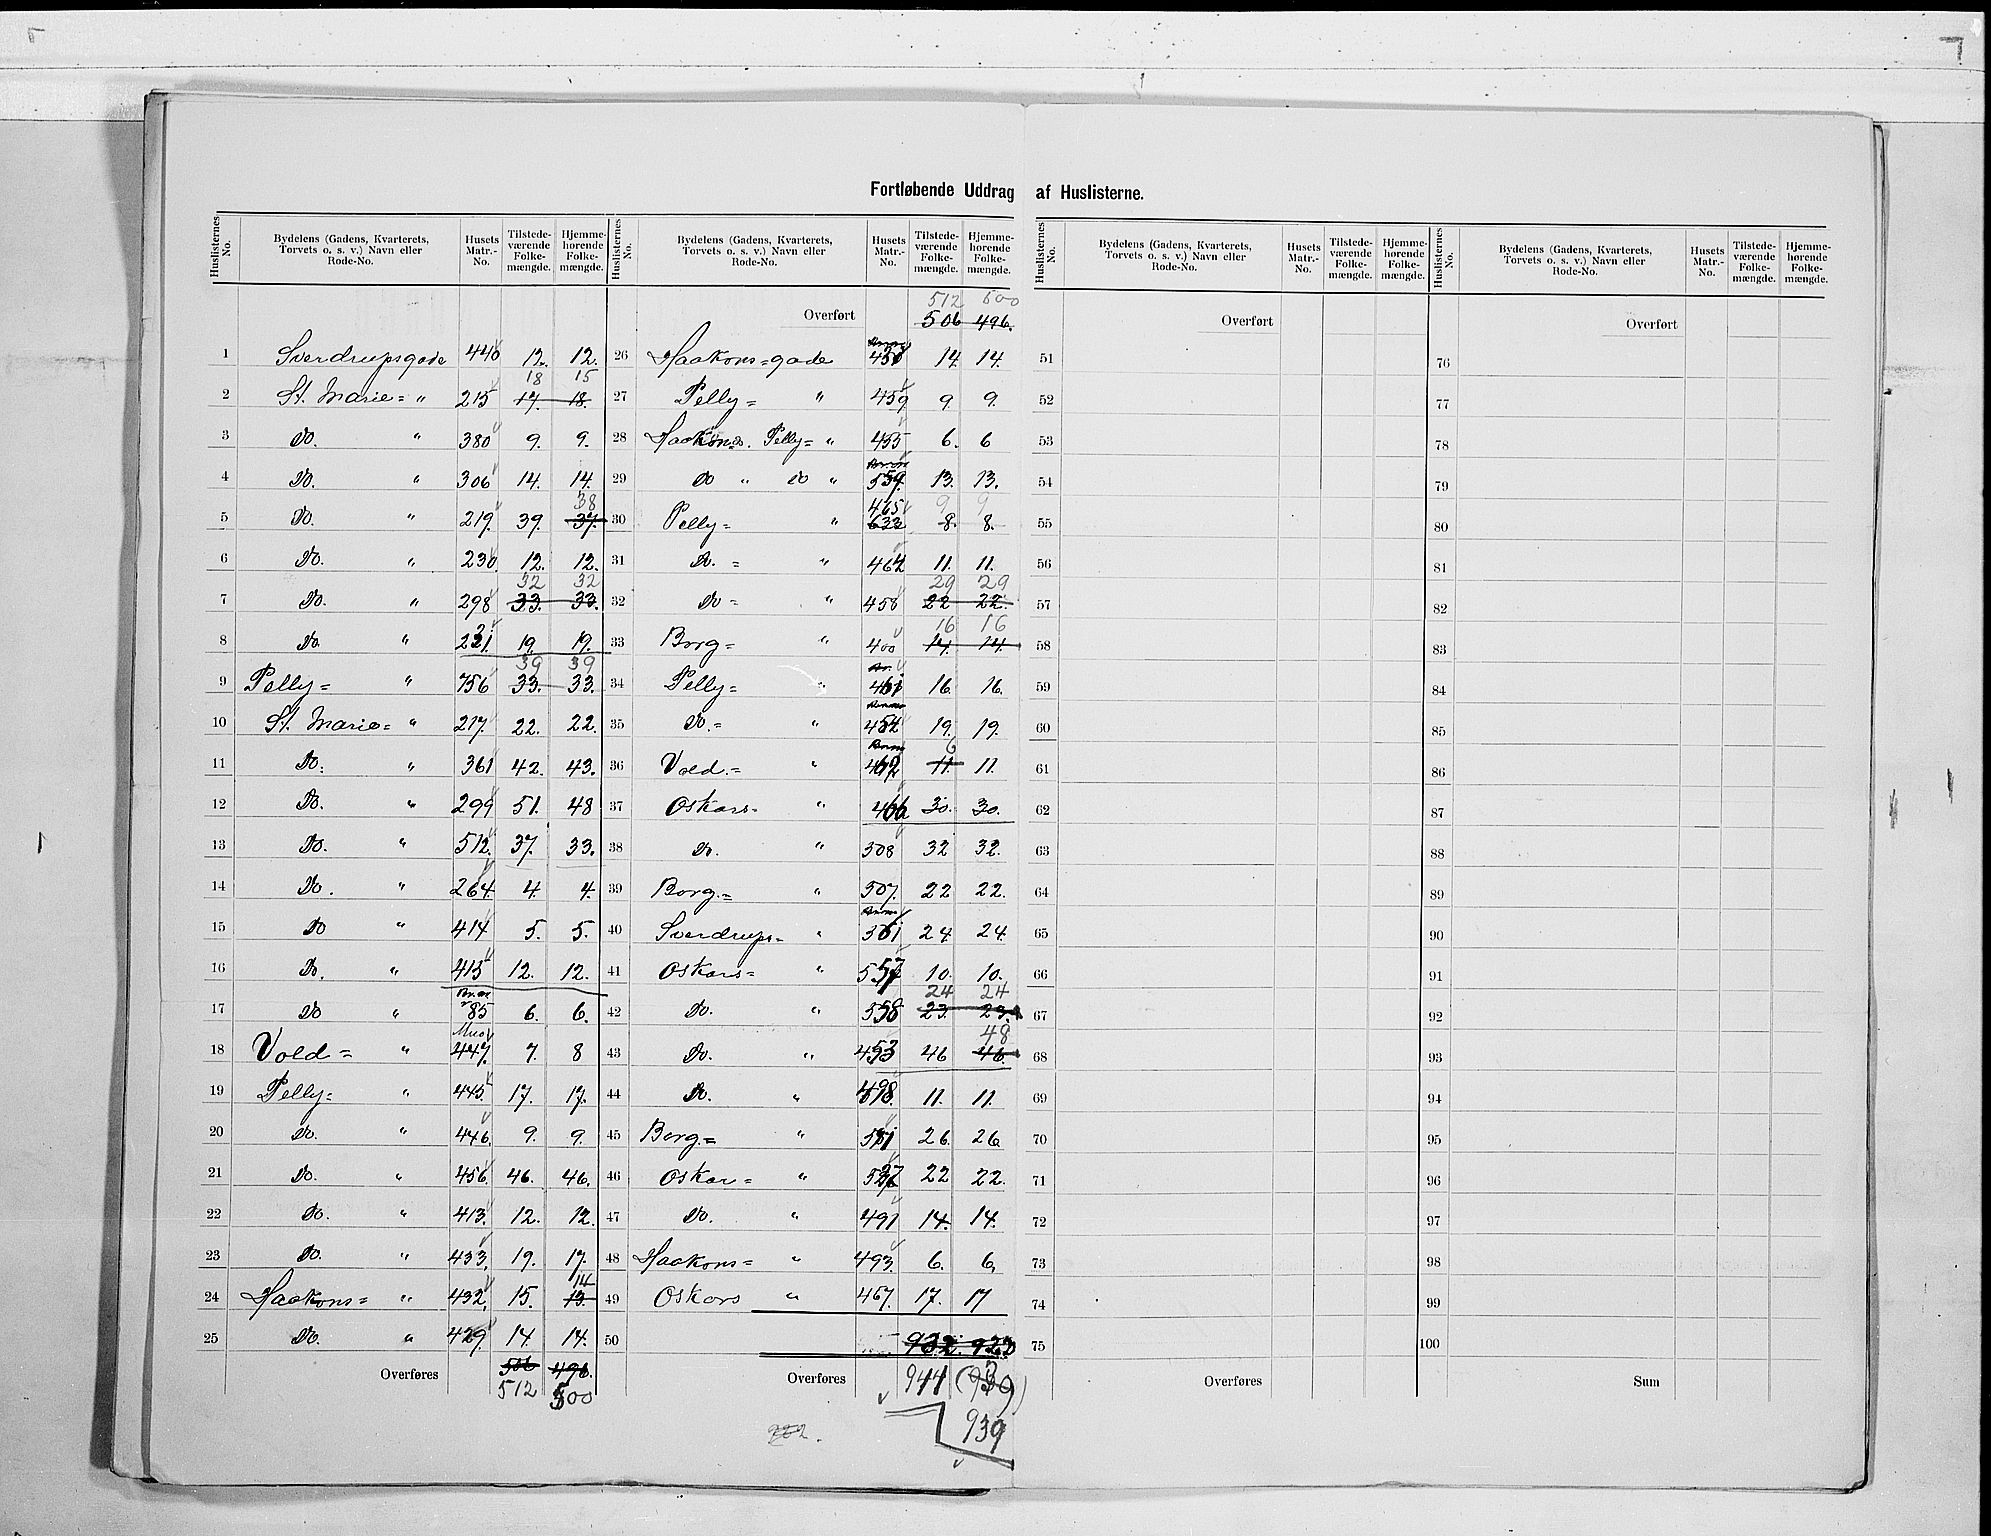 Fortløbende Uddrag af Huslisterne.
Huslisternes No. Bydelens (Gadens, Kvarterets, Torvets o. s. v.) Navn eller Rode-No. Husets Matr.-No. Tilstedeværende Folkemængde. Hjemmehørende Folkemængde.
1 Sverdrupsgade 440 12. 12.
18 15
2 St. Marie= " 215 17. 18.
3 Do. " 380 9. 9.
4 Do. " 306 14. 14.
38
5 Do. " 219. 39. 37.
6 Do. " 230. 12. 12.
32 32
7 Do. " 298 33. 33.
8 Do. " 231. 19. 19.
39 39
9 Pelly= " 756 33. 33.
10 St. Marie= " 217. 22. 22.
11 Do. " 361 42. 43.
12 Do. " 299 51. 48
13 Do. " 512. 37. 33.
14 Do. " 264. 4. 4.
15 Do " 414 5. 5.
16 Do. " 415 12. 12.
17 Do " 85 6. 6.
18 Vold= " 447. 7. 8
19 Pelly= " 445. 17. 17.
20 Do. " 446. 9. 9.
21 Do. " 456. 46. 46.
22 Do. " 413. 12. 12.
23 Do. " 433. 19. 17.
14
24 Haakons= " 432. 15. 13.
25 Do. " 429. 14. 14.
Overføres 506 496.
512 500
Huslisternes No. Bydelens (Gadens, Kvarterets, Torvets o. s. v.) Navn eller Rode-No. Husets Matr.-No. Tilstedeværende Folkemængde. Hjemmehørende Folkemængde.
512 500
Overført 506 496.
26 Haakons=gade 14. 14.
27 Pelly= " 459 9. 9.
28 Haakons. Pelly= " 455 6. 6
29 Do " Do " 559. 13. 13.
465 9 9
30 Pelly= " 633 8. 8.
31 Do. = " 462 11. 11.
29 29
32 Do = " 458 22 22.
16 16
33 Borg= " 400 14. 14.
34 Pelly= " 461 16. 16.
35 Do.= " 19. 19.
6
36 Vold.= " 11. 11.
37 Oskars= " 466 30. 30.
38 Do. " 508 32 32.
39 Borg.= " 507. 22 22.
40 Sverdrups= " 24. 24.
41 Oskars= " 557 10. 10.
24 24
42 Do. " 558 23. 23.
48
43 Do. " 453 46 46.
44 Do. " 498. 11. 11.
45 Borg.= " 26. 26
46 Oskar= " 22 22.
47 Do. " 491 14. 14.
48 Haakons= " 493. 6. 6.
49 Oskars " 467. 17. 17
50 932. 923
Overføres 944 (939)
939
Huslisternes No. Bydelens (Gadens, Kvarterets, Torvets o. s. v.) Navn eller Rode-No. Husets Matr.-No. Tilstedeværende Folkemængde. Hjemmehørende Folkemængde.
Overført
51
52
53
54
55
56
57
58
59
60
61
62
63
64
65
66
67
68
69
70
71
72
73
74
75
Overføres
Huslisternes No. Bydelens (Gadens, Kvarterets, Torvets o. s. v.) Navn eller Rode-No. Husets Matr.-No. Tilstedeværende Folkemængde. Hjemmehørende Folkemængde.
Overført
76
77
78
79
80
81
82
83
84
85
86
87
88
89
90
91
92
93
94
95
96
97
98
99
100
Sum